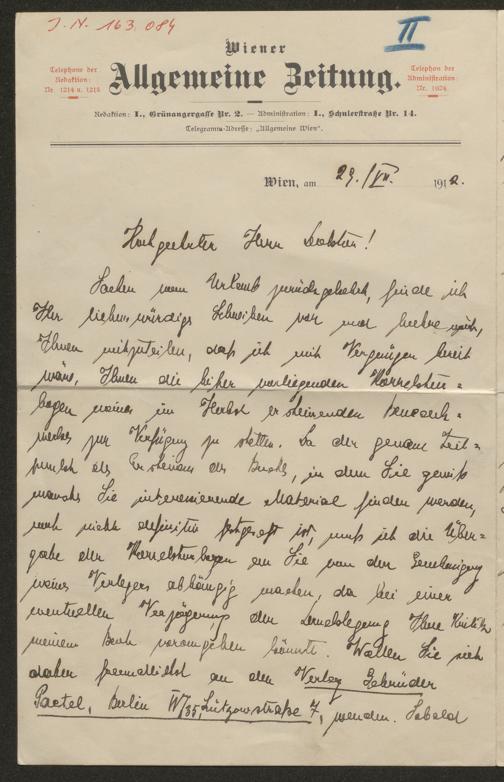 J. N. 163.084
II
Wiener
Allgemeine Zeitung.
Telephone der
Redaktion:
Nr. 1214 u. 1215
Telephon der
Administration:
Nr. 1674.
Redaktion: I., Grünangergasse Nr. 2. — Administration: I., Schulerstraße Nr. 14.
Telegramm-Adresse: „Allgemeine Wien“.
Wien, am 29./VII. 1912.
Hochgeehrter Herr Doktor!
Soeben vom Urlaub zurückgekehrt, finde ich
Ihr liebenswürdiges Schreiben vor und beehre mich,
Ihnen mitzuteilen, daß ich mit Vergnügen bereit
wäre, Ihnen die bisher vorliegenden Korrektur-
bogen meines im Herbst erscheinenden
werkes zur Verfügung zu stellen. Da der genaue Zeit-
punkt des Erscheinens des Buchs, in dem Sie gewiß
manches Sie interessierende Material finden werden,
noch nicht definitiv festgesetzt ist, muß ich die Über-
gabe der Korrekturbogen an Sie von der Genehmigung
meines Verlegers abhängig machen, da bei einer
eventuellen Verzögerung der Drucklegung Ihre Kritik
meinem Buch vorangehen könnte. Wollen Sie sich
daher freundlichst an den Verlag Gebrüder
Paetel, Berlin W/35, Lützowstraße 7, wenden. Sobald